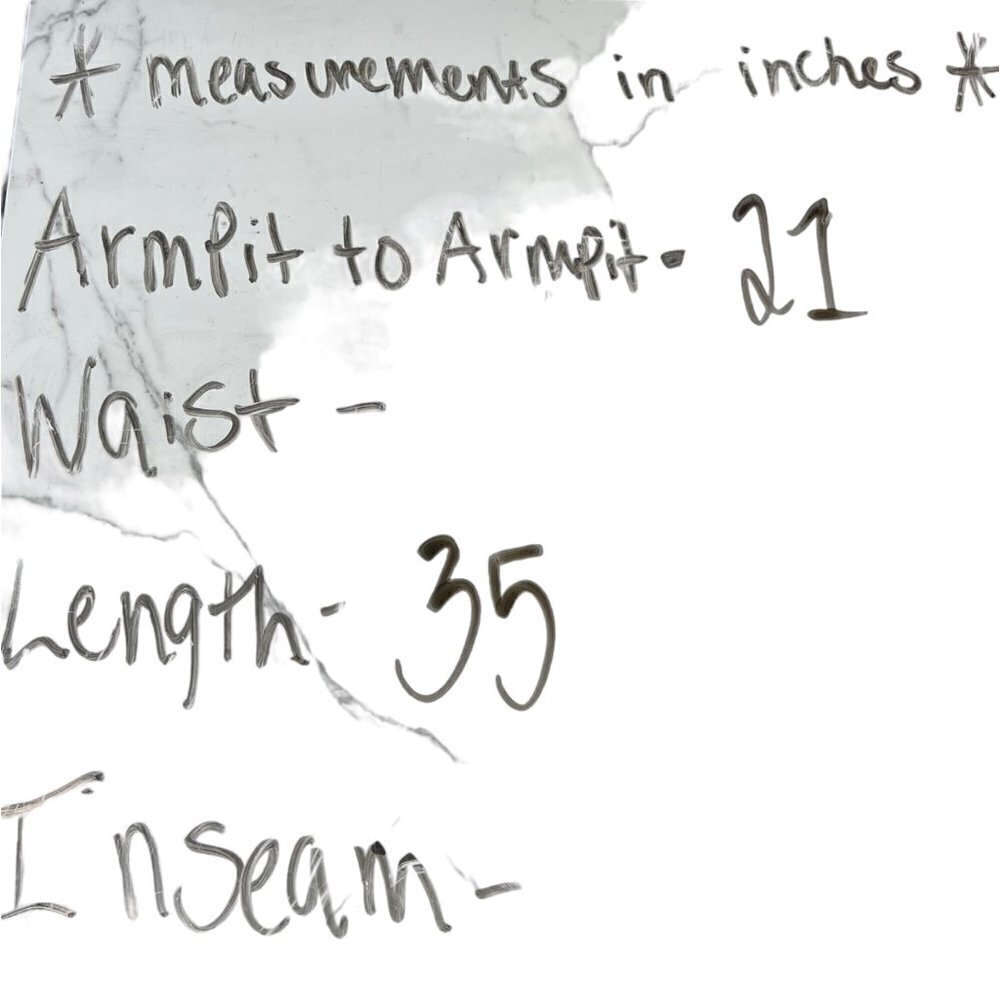 * measurements in inches *
Armpit to Armpit - 21
Waist -
Length - 35
Inseam -